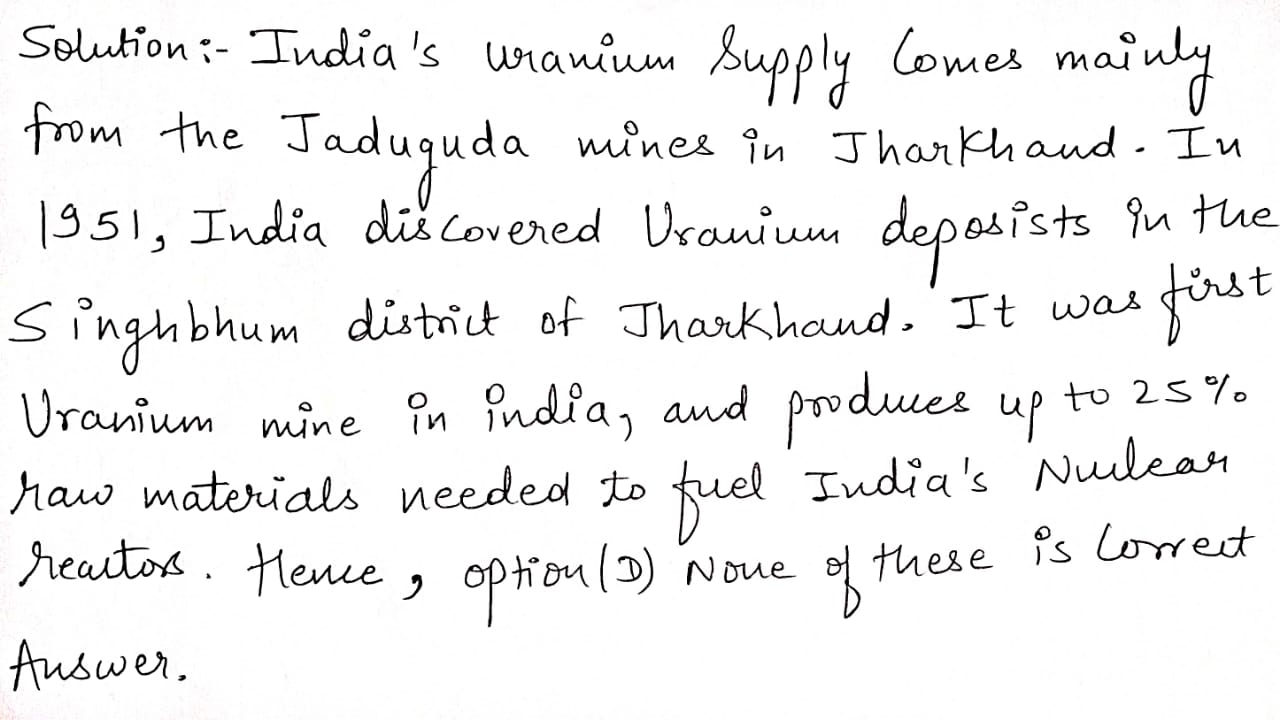 Solution :- India's uranium Supply Comes mainly
from the Jaduguda mines in Jharkhand. In
1951, India discovered Uranium deposists in the
Singhbhum district of Jharkhand. It was first
Uranium mine in india, and produces up to 25%
raw materials needed to fuel India's Nuclear
reactors. Hence, option (D) None of these is Correct
Answer.